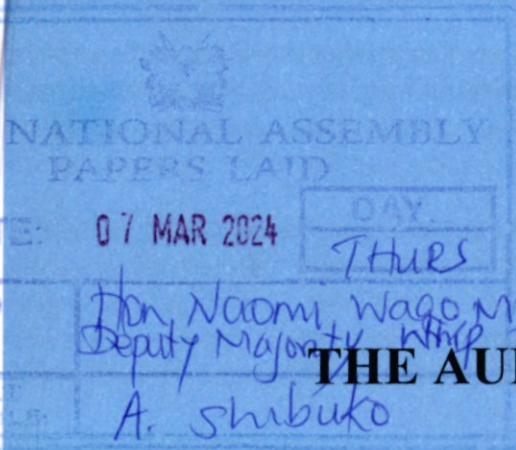 NATIONAL ASSEMBLY
PAPERS LAID
DAY.
07 MAR 2024
THURS
Hon. Naomi Wago M
Deputy Majority Whip
THE AU
A. Shibuko